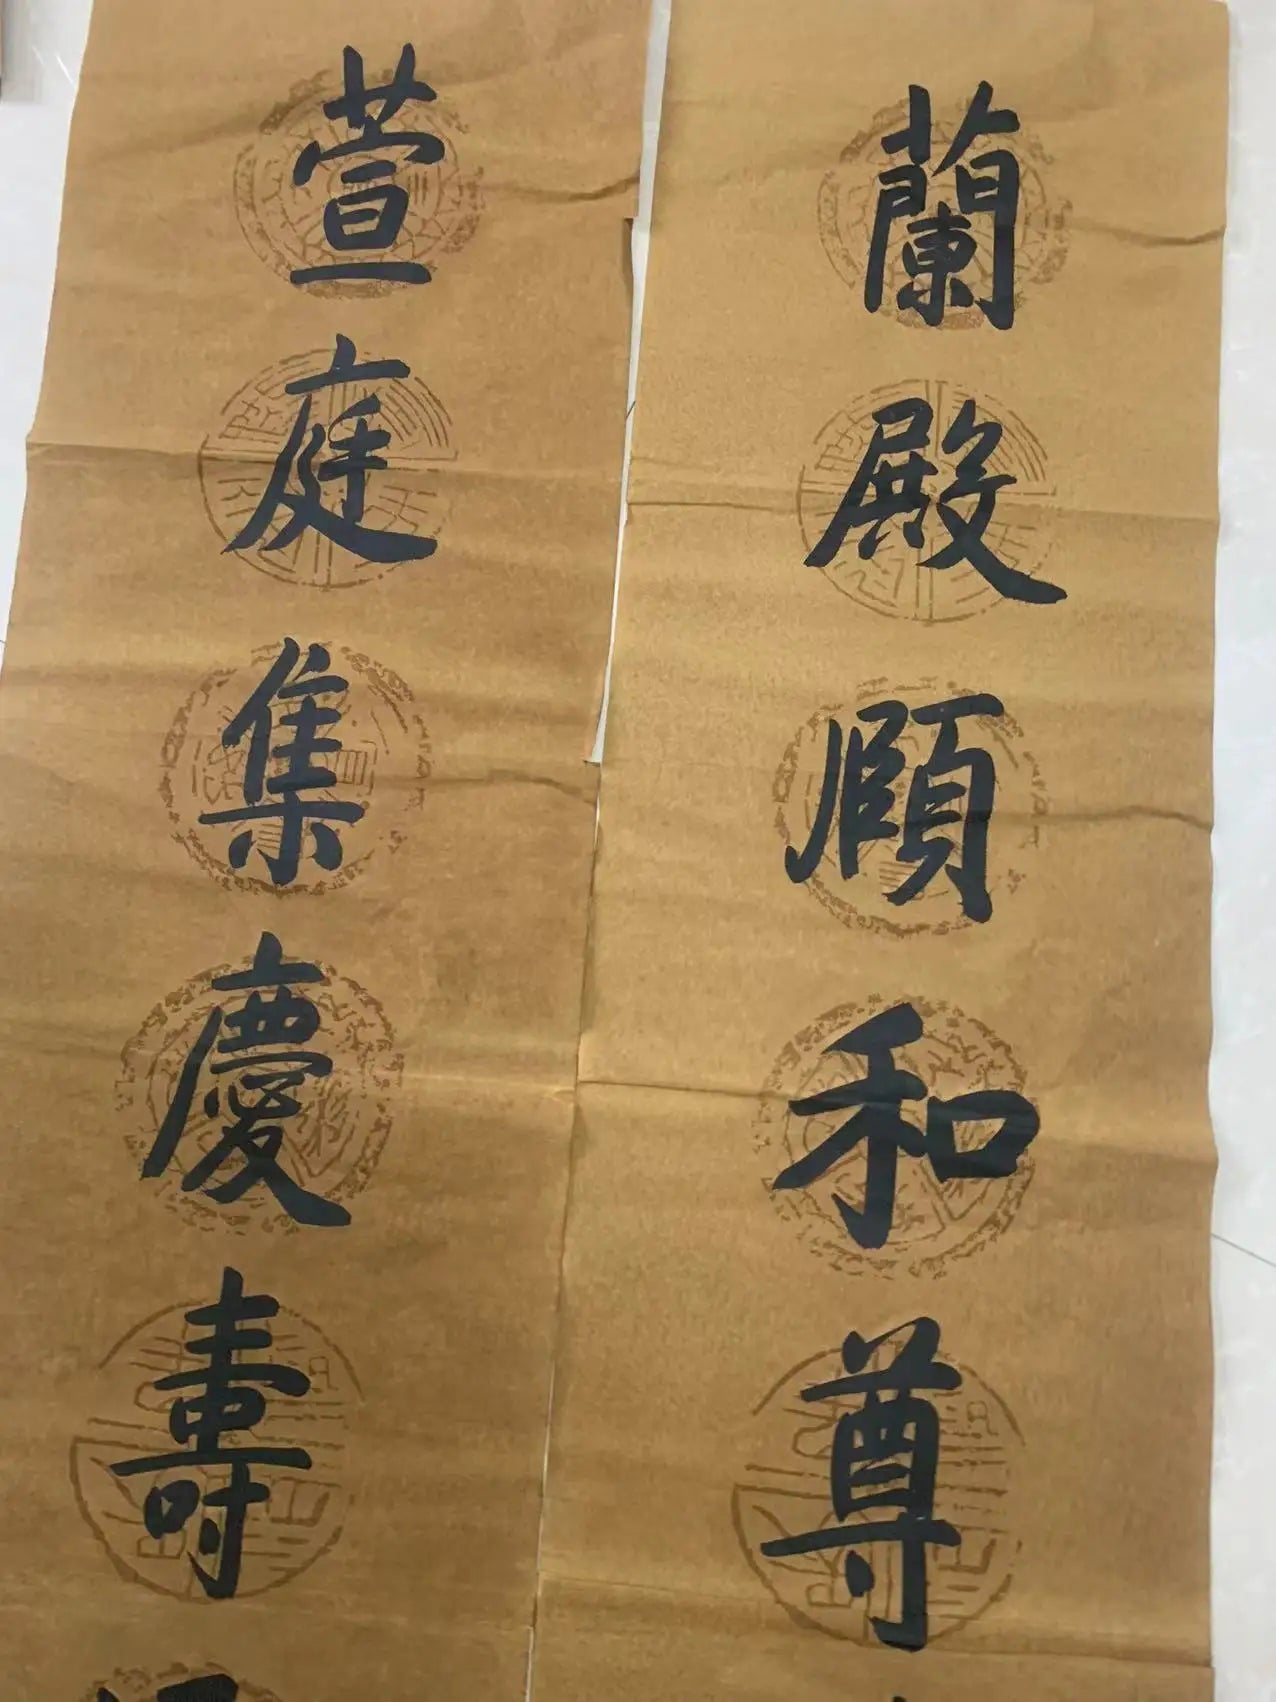 蘭殿頤和尊
萱庭集慶壽